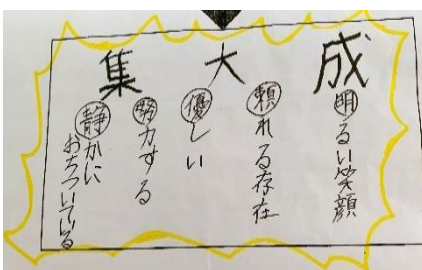 集大成
明るい笑顔
頼れる存在
優しい
努力する
静かに
おちついている